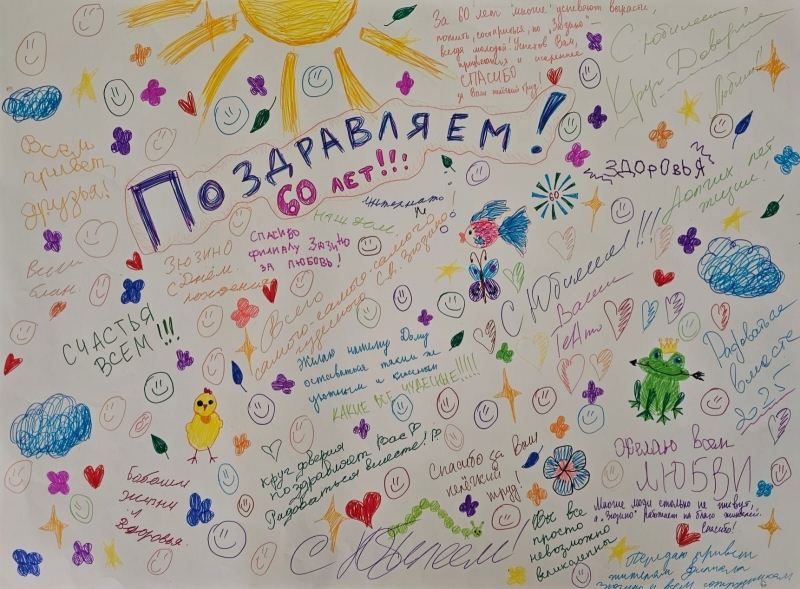 За 60 лет "многие" успевают
возрасте,
пожить, состариться, но "Зюзино" –
всегда молодой! Успехов Вам,
СПАСИБО
за Ваш нелёгкий труд!
С юбилеем
Круг Доверия
Всем
привет
друзья!
ПОЗДРАВЛЯЕМ!
60 ЛЕТ!!!
60
ЗДОРОВЬЯ
Долгих лет
жизни!
Всем
благ
ЗЮЗИНО
С Днём
рождения
СПАСИБО
ФИЛИАЛУ ЗЮЗИНО
ЗА ЛЮБОВЬ!
НАШ ДОМ
Интернат
№
Всего
самого-самого-самого
чудесного
С.В. Зюзино
С Юбилеем!!!
Ваши
ТеАто
СЧАСТЬЯ
ВСЕМ!!!
Желаю нашему Дому
оставаться таким же
уютным и
КАКИЕ ВСЕ ЧУДЕСНЫЕ!!!!
Радоваться
вместе
2025
круг доверия
поздравляет Вас
Радоваться вместе!
Спасибо за Ваш
нелёгкий
труд!
Желаю всем
ЛЮБВИ
Многие люди столько не живут,
а "Зюзино" работает на благо жителей.
Спасибо!
жизни
и
Здоровья.
С Юбилеем!
Вы все
просто
невозможно
великолепны
Передаю привет
жителям филиала
Зюзино и всем сотрудникам